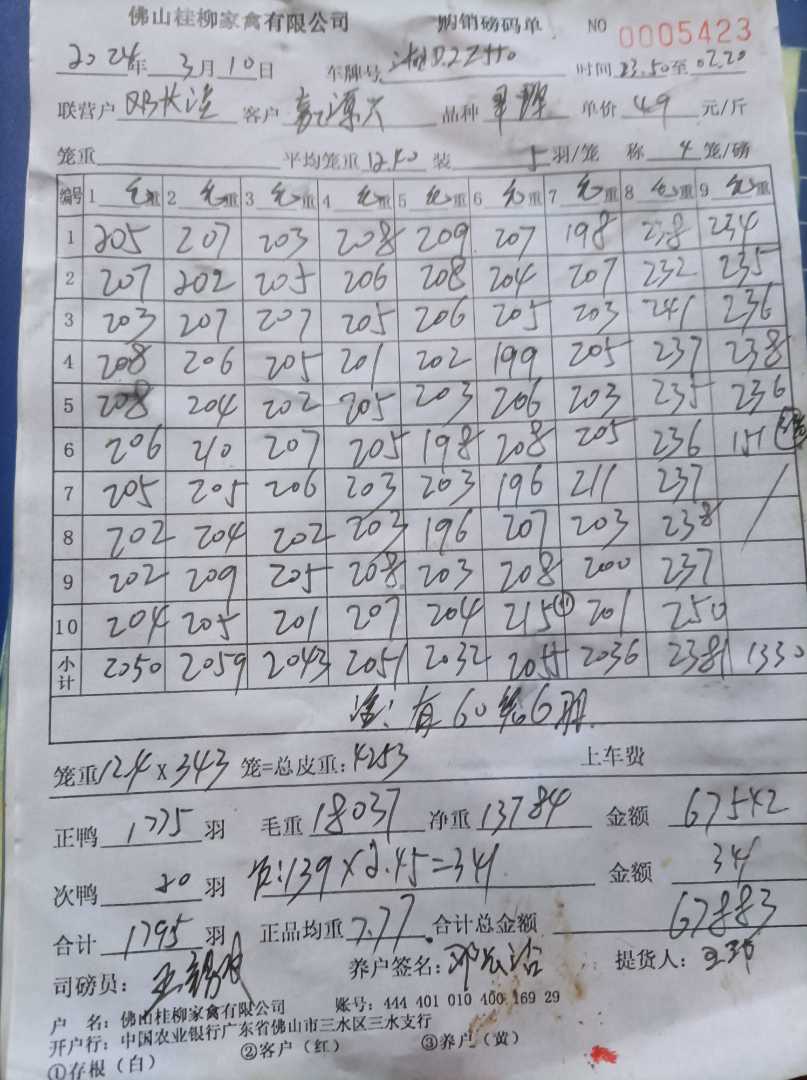 佛山桂柳家禽有限公司 购销磅码单 NO 0005423
2024年 3月10日 车牌号 时间 23.50至 02.20
联营户 邓长洪 客户 品种 单价 4.9 元/斤
笼重 平均笼重 12.40 装 5 羽/笼 称 4 笼/磅
编号 1 毛重 2 毛重 3 毛重 4 毛重 5 毛重 6 毛重 7 毛重 8 毛重 9 毛重
1 205 207 203 208 209 207 198 238 234
2 207 202 205 206 208 204 207 232 235
3 203 207 207 205 206 205 203 241 236
4 208 206 205 201 202 199 205 237 238
5 208 204 202 205 203 206 203 235 236
6 206 210 207 205 198 208 205 236 151
7 205 205 206 203 203 196 211 237
8 202 204 202 203 196 207 203 238
9 202 209 205 208 203 208 200 237
10 204 205 201 207 204 215 201 250
小计 2050 2059 2043 2051 2032 2055 2036 2381 1330
有60笼6羽
笼重12.4 X 343 笼=总皮重: 4253 上车费
正鸭 1775 羽 毛重 18037 净重 13784 金额 67542
次鸭 20 羽 139 X 2.45=341 金额 341
合计 1795 羽 正品均重 7.77 合计总金额 67883
司磅员: 养户签名: 提货人:
户 名: 佛山桂柳家禽有限公司 账号: 444 401 010 400 169 29
开户行: 中国农业银行广东省佛山市三水区三水支行
①存根(白) ②客户(红) ③养户(黄)